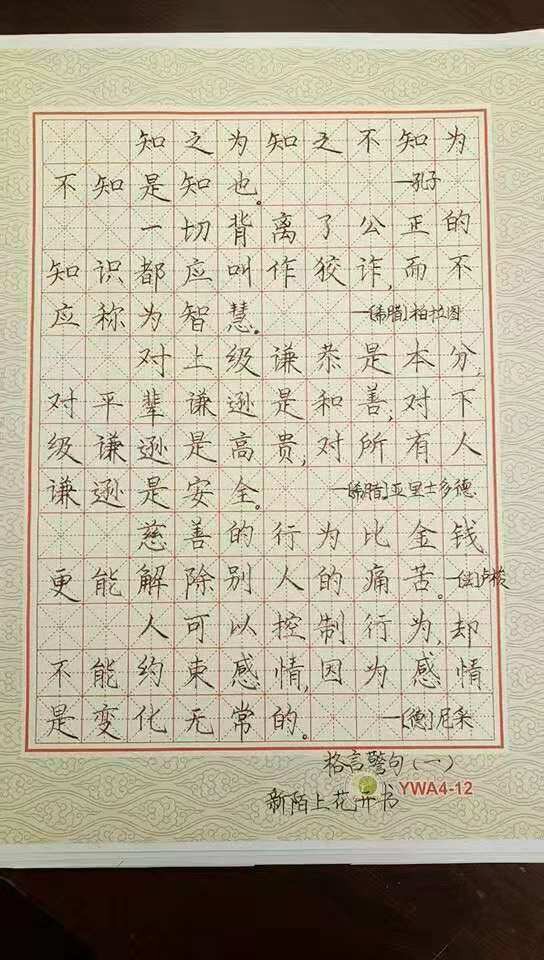 知之为知之不知为
不知是知也。 —孔子
一切背离了公正的
知识都应叫作狡诈,而不
应称为智慧。 —[希腊]柏拉图
对上级谦恭是本分,
对平辈谦逊是和善,对下
级谦逊是高贵,对所有人
谦逊是安全。 —[希腊]亚里士多德
慈善的行为比金钱
更能解除别人的痛苦。—[法]卢梭
人可以控制行为,却
不能约束感情,因为感情
是变化无常的。 —[德]尼采
格言警句(一)
新陌上花开书
YWA4-12